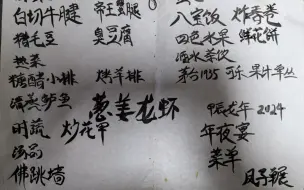 白切牛腱 帝王蟹腿
猪毛豆 臭豆腐
热菜
糖醋小排 烤羊排
清蒸鲈鱼 葱姜龙虾
时蔬 炒花甲
汤品
佛跳墙
八宝饭 炸春卷
四色水果 鲜花饼
酒水茶饮
茅台1935 可乐 果汁 单丛
甲辰龙年 2024
年夜宴
菜单